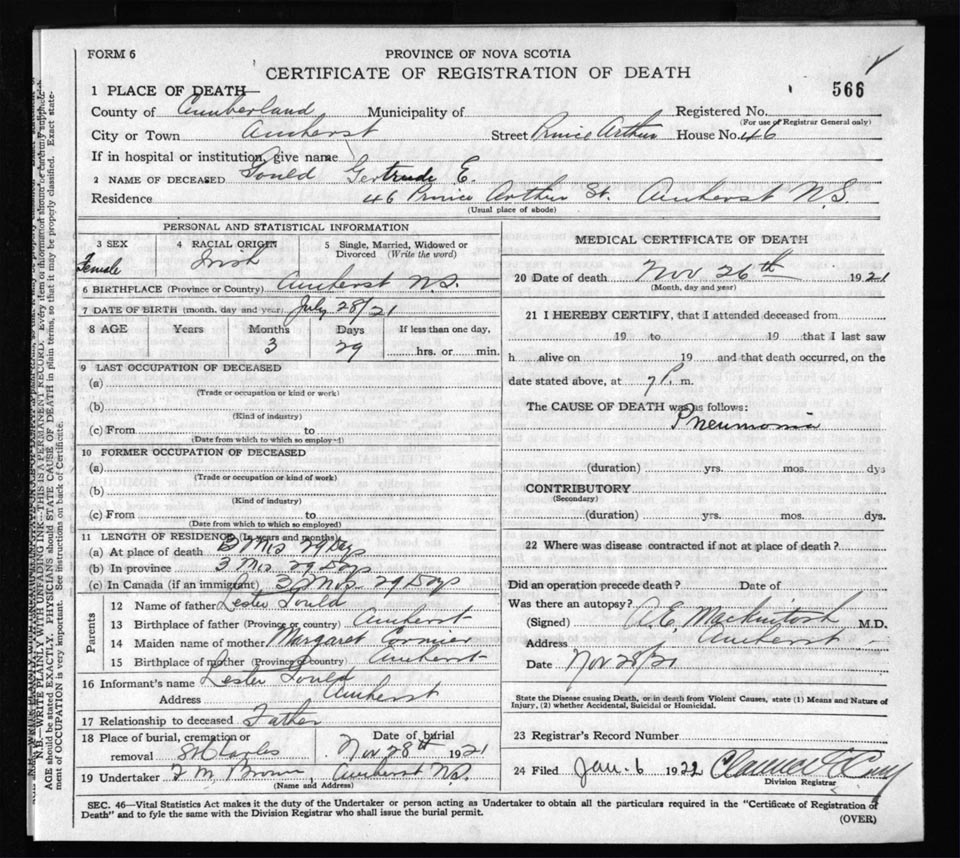 FORM 6
PROVINCE OF NOVA SCOTIA
CERTIFICATE OF REGISTRATION OF DEATH
566
1 PLACE OF DEATH
County of Cumberland Municipality of Registered No.
(For use of Registrar General only)
City or Town Amherst Street Prince Arthur House No. 46
If in hospital or institution, give name
2 NAME OF DECEASED Gould Gertrude E.
Residence 46 Prince Arthur St. Amherst N.S.
(Usual place of abode)
PERSONAL AND STATISTICAL INFORMATION
3 SEX 4 RACIAL ORIGIN 5 Single, Married, Widowed or Divorced (Write the word)
Female Irish
6 BIRTHPLACE (Province or Country) Amherst N.S.
7 DATE OF BIRTH (month, day and year) July 28/21
8 AGE Years Months Days If less than one day,
3 29 hrs. or min.
9 LAST OCCUPATION OF DECEASED
(a)
(Trade or occupation or kind or work)
(b)
(Kind of industry)
(c) From to
(Date from which to which so employed)
10 FORMER OCCUPATION OF DECEASED
(a)
(Trade or occupation or kind of work)
(b)
(Kind of industry)
(c) From to
(Date from which to which so employed)
11 LENGTH OF RESIDENCE (In years and months)
(a) At place of death 3 Mos 29 Days
(b) In province 3 Mos 29 Days
(c) In Canada (if an immigrant) 3 Mos. 29 Days
Parents
12 Name of father Lester Gould
13 Birthplace of father (Province or country) Amherst
14 Maiden name of mother Margaret Cormier
15 Birthplace of mother (Province of country) Amherst
16 Informant's name Lester Gould
Address Amherst
17 Relationship to deceased Father
18 Place of burial, cremation or Date of burial
removal St Charles Nov 28th 1921
19 Undertaker F M Brown, Amherst N.S.
(Name and Address)
MEDICAL CERTIFICATE OF DEATH
20 Date of death Nov 26th 1921
(Month, day and year)
21 I HEREBY CERTIFY, that I attended deceased from
19 to 19 that I last saw
h alive on 19 and that death occurred, on the
date stated above, at 7 P. m.
The CAUSE OF DEATH was as follows:
Pneumonia
(duration) yrs. mos. dys
CONTRIBUTORY
(Secondary)
(duration) yrs. mos. dys.
22 Where was disease contracted if not at place of death?
Did an operation precede death? Date of
Was there an autopsy?
(Signed) A.E. Mackintosh M.D.
Address Amherst
Date Nov 28/21
State the Disease causing Death, or in death from Violent Causes, state (1) Means and Nature of
Injury, (2) whether Accidental, Suicidal or Homicidal.
23 Registrar's Record Number
24 Filed Jan. 6 1922
Division Registrar
SEC. 46—Vital Statistics Act makes it the duty of the Undertaker or person acting as Undertaker to obtain all the particulars required in the "Certificate of Registration of
Death" and to fyle the same with the Division Registrar who shall issue the burial permit.
(OVER)
N.B.—WRITE PLAINLY WITH UNFADING INK—THIS IS A PERMANENT RECORD. Every item of information should be carefully supplied.
AGE should be stated EXACTLY. PHYSICIANS should STATE CAUSE OF DEATH in plain terms, so that it may be properly classified. Exact state-
ment of OCCUPATION is very important. See instructions on back of Certificate.